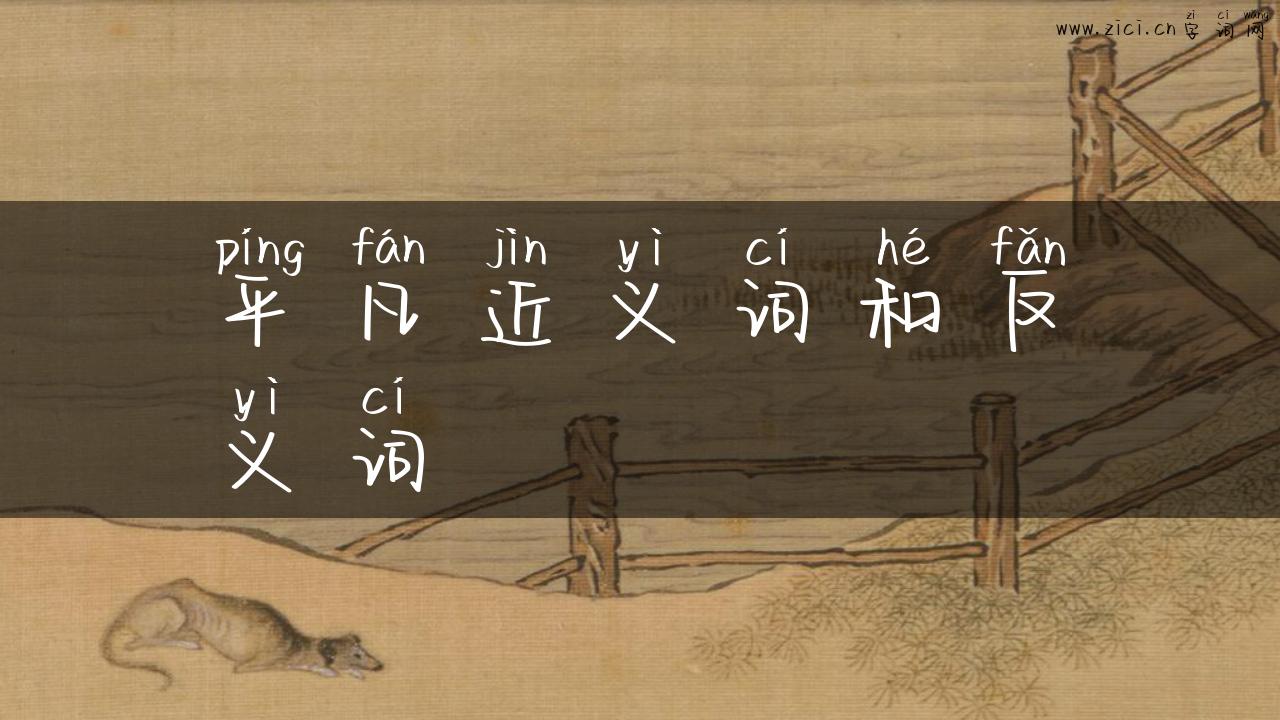 zì cí wǎng
www.zici.cn 字词网
píng fán jìn yì cí hé fǎn
平凡近义词和反
yì cí
义词